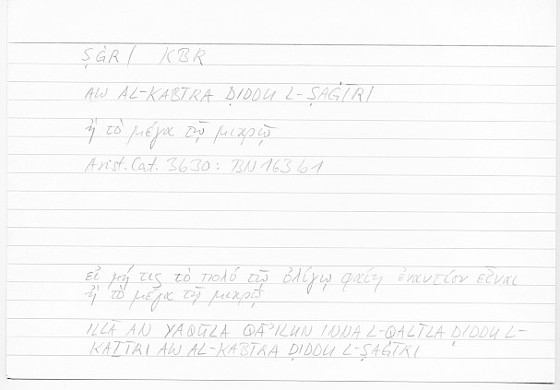 ṢĠR / KBR
AW AL-KABĪRA ḌIDDU L-ṢAĠĪRI
ἢ τὸ μέγα τῷ μικρῷ
Arist. Cat. 3b30: BN 163b1
εἰ μή τις τὸ πολὺ τῷ ὀλίγῳ φαίη ἐναντίον εἶναι
ἢ τὸ μέγα τῷ μικρῷ
ILLĀ AN YAQŪLA QĀʾILUN INNA L-QALĪLA ḌIDDU L-
KAṮĪRI AW AL-KABĪRA ḌIDDU L-ṢAĠĪRI